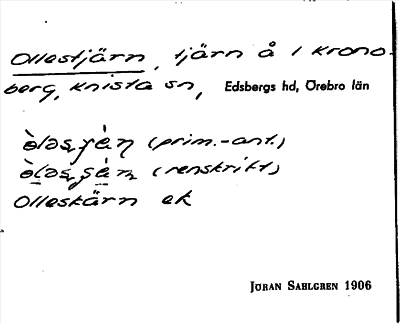 Ollestjärn, tjärn å 1 krono-
berg, Knista sn, Edsbergs hd, Örebro län
(prim.-ant.)
(renskrift)
Olleskärn ek
JÖRAN SAHLGREN 1906